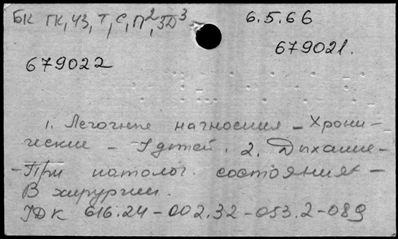 БК ГК, ЧЗ, Т, С, П², 3D³
6.5.66
679021.
679022
1. Легочные нагноения – Хрони-
ческие – У детей. 2. Дыхание –
– При патолог. состояниях –
В хирургии.
УДК 616.24-002.32-053.2-089